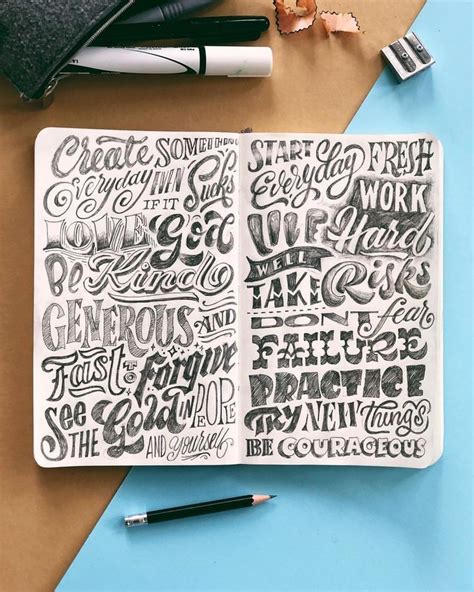 Create SOMETHING
Everyday EVEN
IF IT Sucks
LOVE God
Be Kind
GENEROUS AND
Fast TO forgive
See THE Gold IN PEOPLE
AND yourself
START Everyday FRESH
WORK Hard
LIVE WELL
TAKE Risks
DONT fear
FAILURE
PRACTICE
TRY NEW things
BE COURAGEOUS